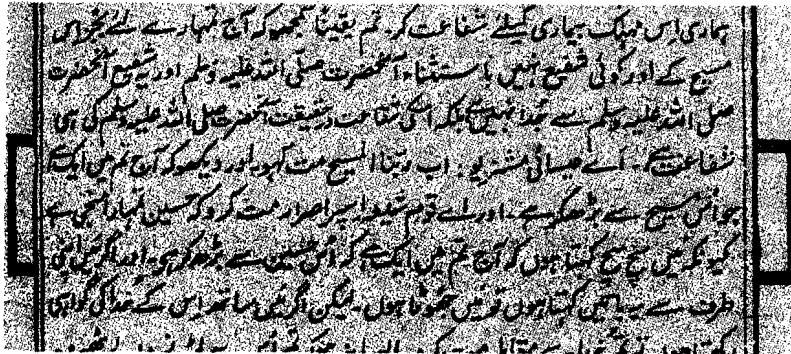 ہماری اس مہلک بیماری کیلئے شفاعت کر۔ تم یقیناً سمجھو کہ آج تمہارے لئے بجز اس
مسیح کے اور کوئی شفیع نہیں باستثناء آنحضرت صلی اللہ علیہ وسلم اور یہ شفیع آنحضرت
صلی اللہ علیہ وسلم سے جدا نہیں ہے بلکہ اسکی شفاعت درحقیقت آنحضرت صلی اللہ علیہ وسلم کی ہی
شفاعت ہے۔ اے عیسائی مشنریو! اب ربنا المسیح مت کہو اور دیکھو کہ آج تم میں ایک ہے
جو اُس مسیح سے بڑھکر ہے۔ اور اے قوم شیعہ اسپر اصرار مت کرو کہ حسین تمہارا منجی ہے
کیونکہ میں سچ سچ کہتا ہوں کہ آج تم میں ایک ہے کہ اُس حسین سے بڑھکر ہے۔ اور اگر میں اپنی
طرف سے یہ باتیں کہتا ہوں تو میں جھوٹا ہوں۔ لیکن اگر میں ساتھ اس کے خدا کی گواہی